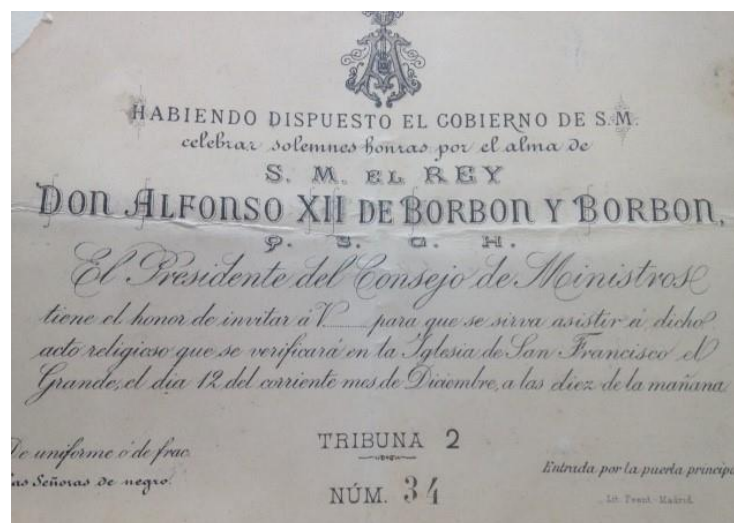 HABIENDO DISPUESTO EL GOBIERNO DE S.M.
celebrar solemnes honras por el alma de
S. M. EL REY
DON ALFONSO XII DE BORBON Y BORBON,
Q. S. G. H.
El Presidente del Consejo de Ministros
tiene el honor de invitar á V...... para que se sirva asistir á dicho
acto religioso que se verificará en la Iglesia de San Francisco el
Grande, el dia 12 del corriente mes de Diciembre, a las diez de la mañana.
TRIBUNA 2
De uniforme ó de frac.
Las Señoras de negro.
Entrada por la puerta principa
NÚM. 34
Lit. Madrid.